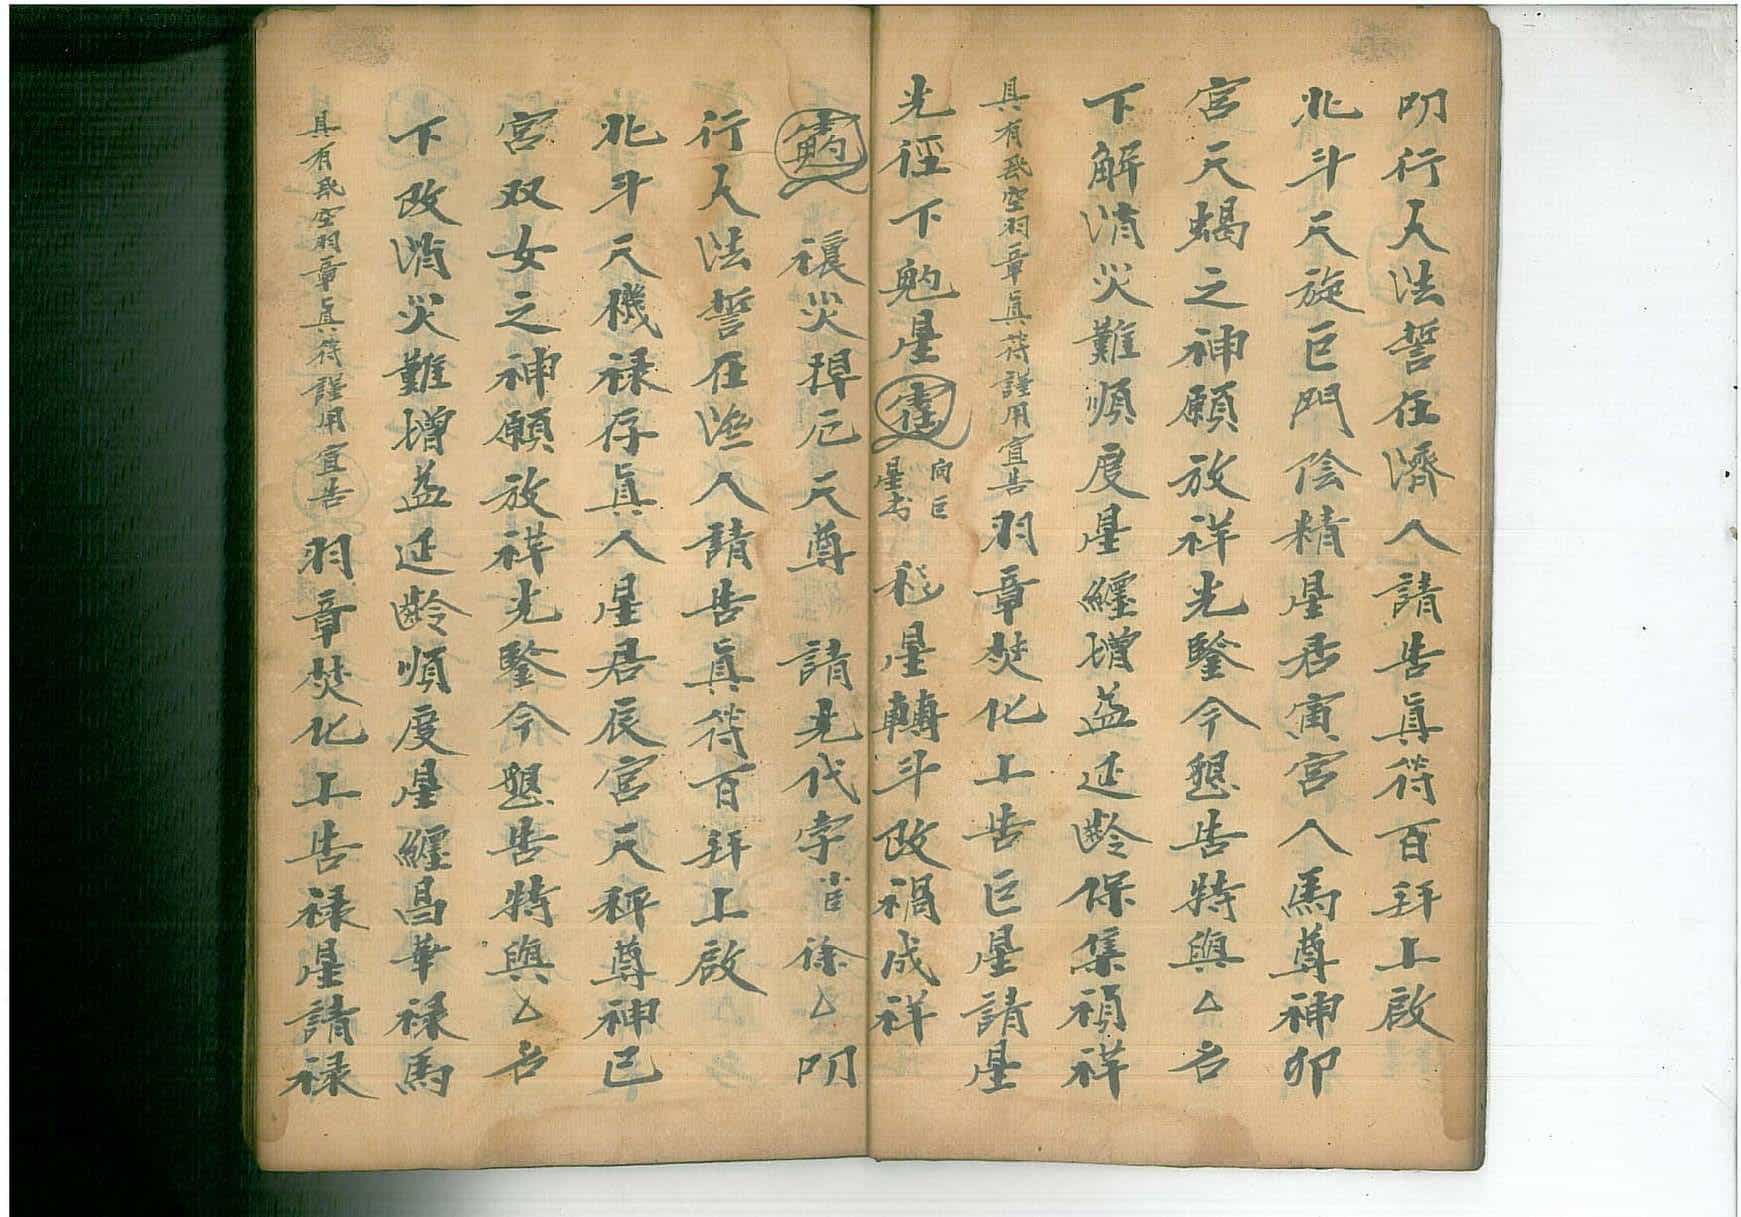 叨行人法誓在濟人請告眞符百拜上啟
北斗天旋巨門陰精星君寅宮人馬尊神卯
宮天蝎之神願放祥光鑒今懇告特與厶名
下解消災難順度星纏增益延齡保集禎祥
具有飛空羽章眞符謹用宣告羽章焚化上告巨星請星
光徑下勉星 向巨星书 移星轉斗改禍成祥
禳災掉厄天尊 請光代字省徐厶叨
行人法誓在濟人請告眞符百拜上啟
北斗天機禄存眞人星君辰宮天秤尊神巳
宮双女之神願放祥光鑒今懇告特與厶名
下改消災難增益延齡順度星纏昌華禄馬
具有飛空羽章眞符謹用宣告羽章焚化上告禄星請禄